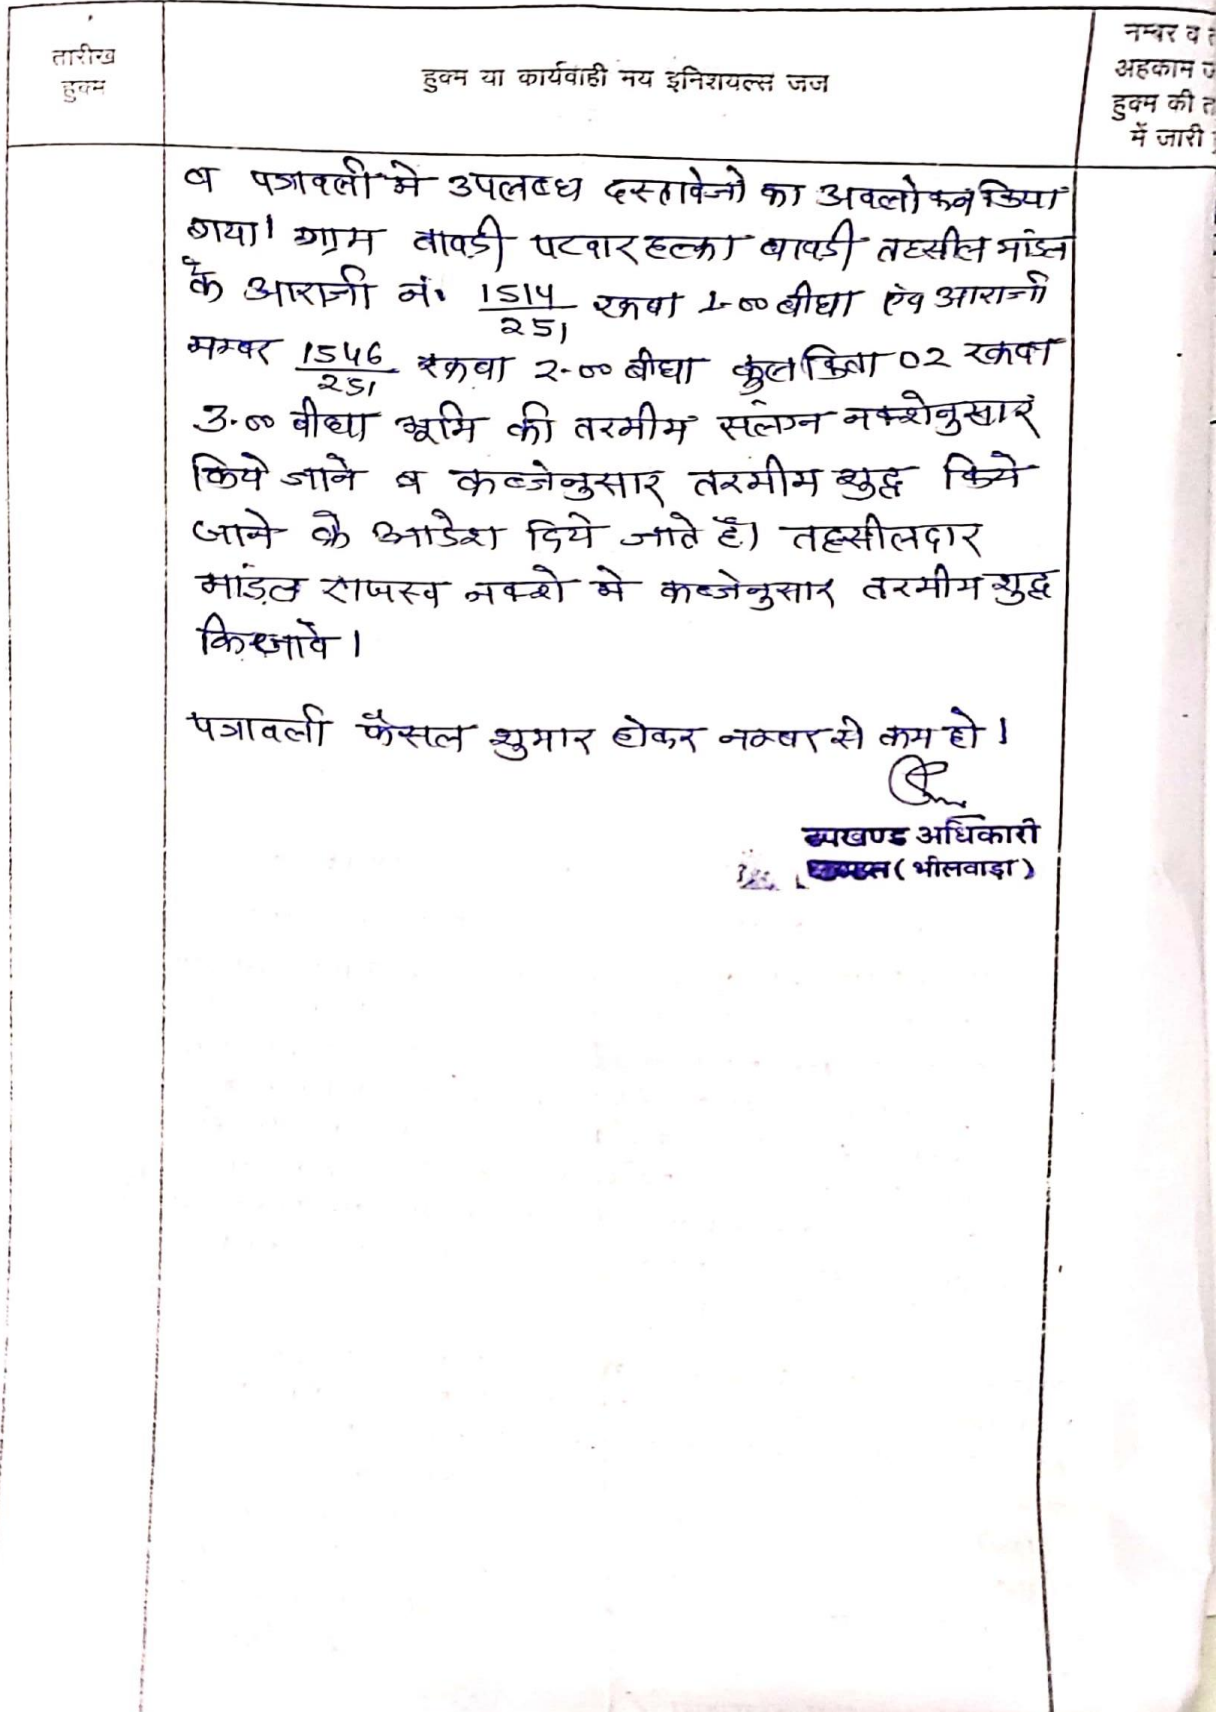 तारीख
हुक्म
हुक्म या कार्यवाही मय इनिशयल्स जज
नम्बर व त
अहकाम ज
हुक्म की त
में जारी
व पत्रावली मे उपलब्ध दस्तावेजो का अवलोकन किया
गया। ग्राम बावडी पटवार हल्का बावडी तहसील मांडल
के आराजी नं. 1514/251 रकबा 1-00 बीघा एंव आराजी
नम्बर 1546/251 रकबा 2-00 बीघा कुल किता 02 रकबा
3-00 बीघा भूमि की तरमीम सलंग्न नक्शेनुसार
किये जाने व कब्जेनुसार तरमीम शुद्ध किये
जाने के आदेश दिये जाते है। तहसीलदार
मांडल राजस्व नक्शे मे कब्जेनुसार तरमीम शुद्ध
किजावे।
पत्रावली फैसल शुमार होकर नम्बर से कम हो।
उपखण्ड अधिकारी
माण्डल (भीलवाड़ा)